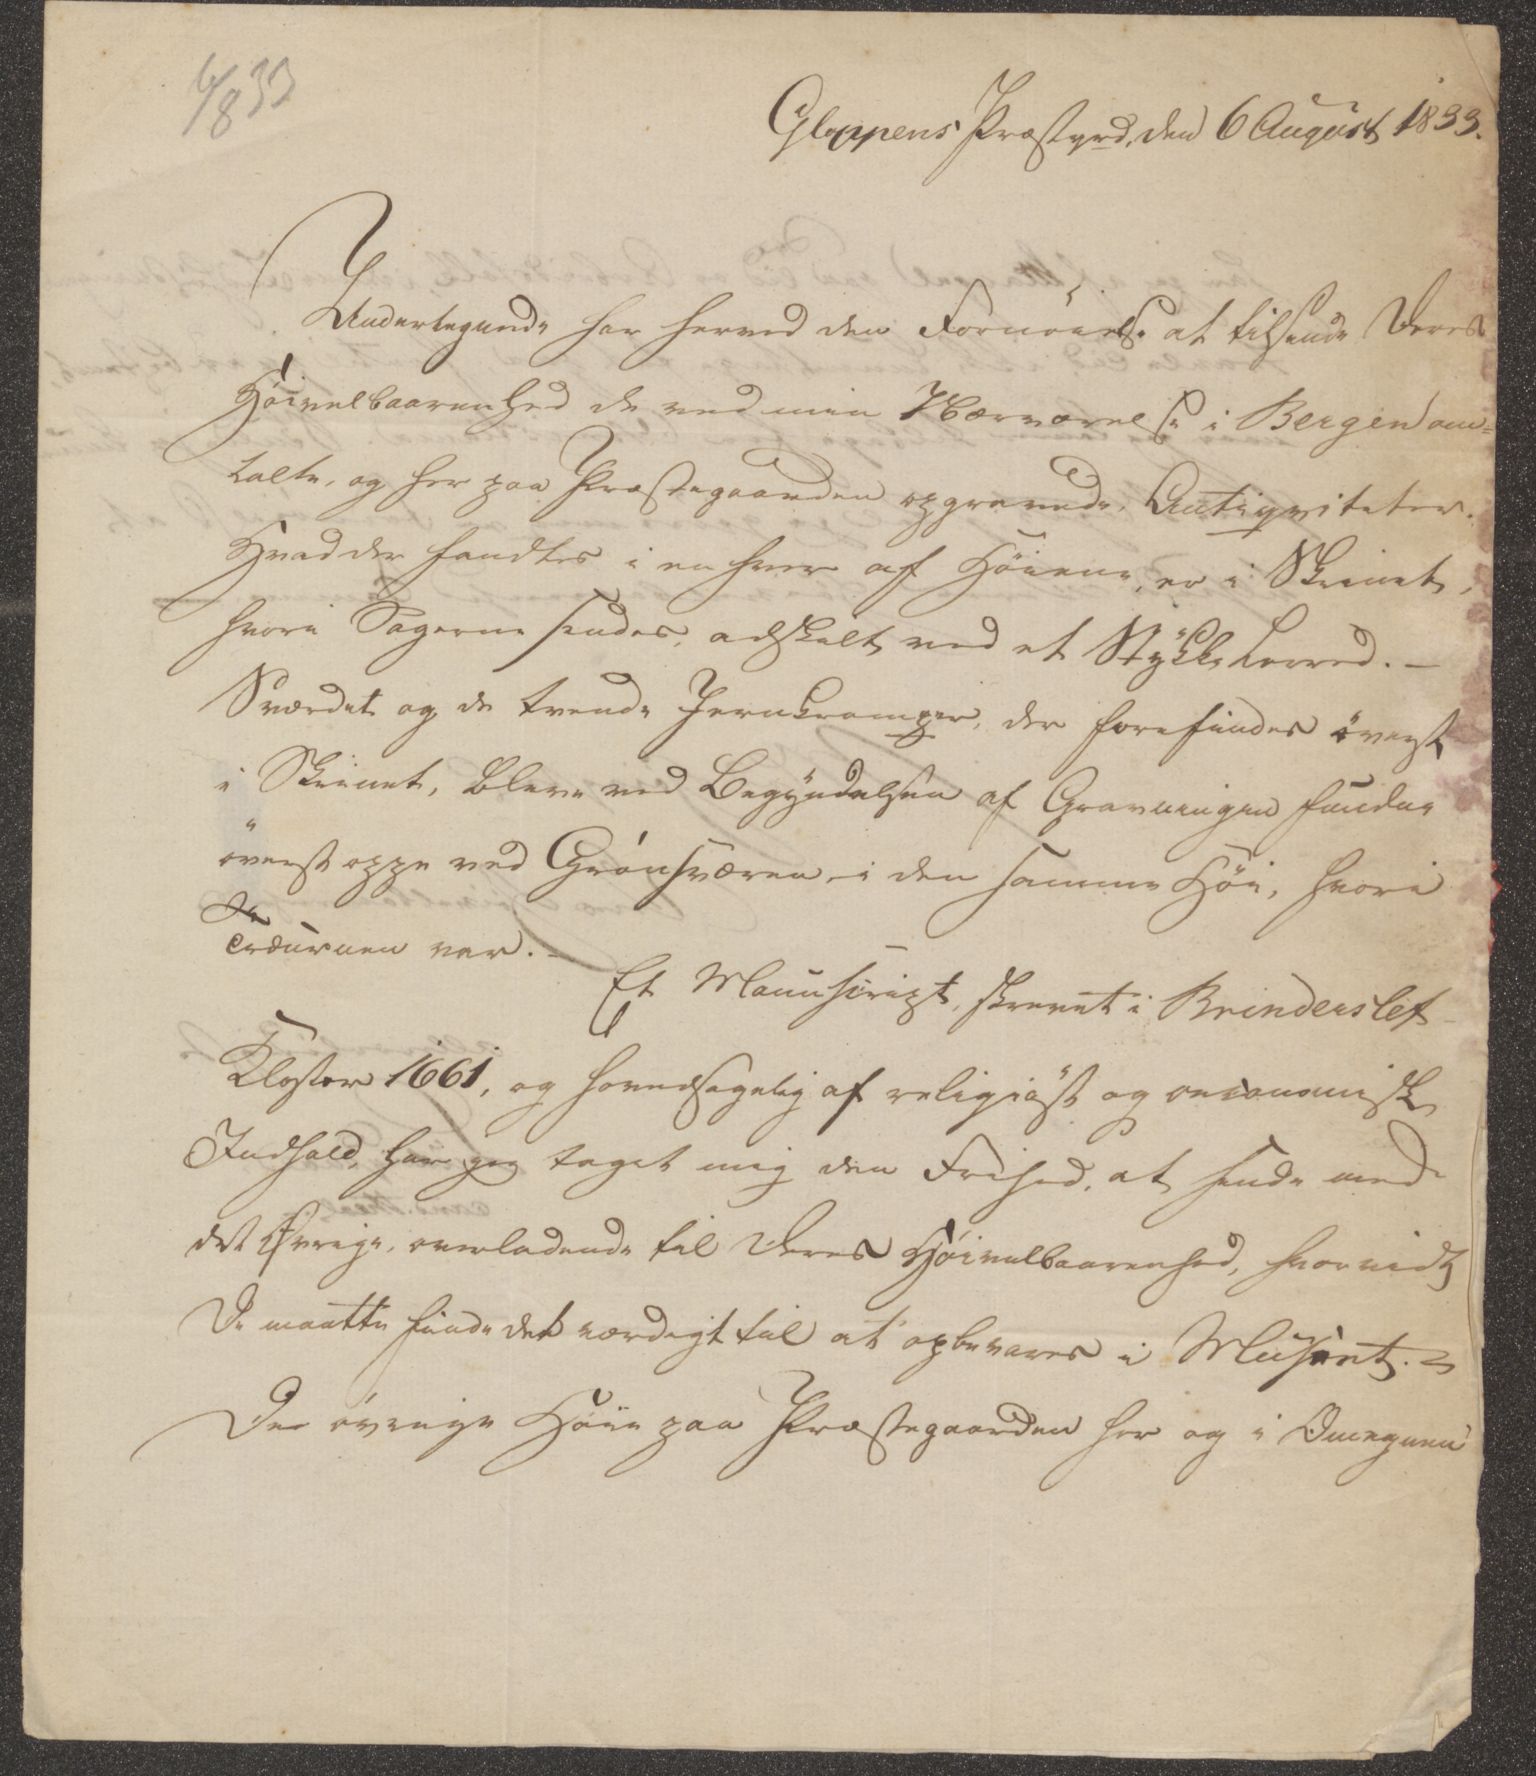 6/8 33
Gloppens Præstgrd, den 6 August 1833.
Undertegnede har herved den Fornöielse at tilsende Deres
Höivelbaarenhed de ved min Nærværelse i Bergen om-
talte, og her paa Præstegaarden opgravede, Antiqviteter.
Hvad der fandtes i enhver af Höiene, er i Skrinet,
hvori Sagerne sendes, adskilt ved et Stykke Lerred. –
Sværdet og de tvende Jernkramper, der forefindes överst
i Skrinet, bleve ved Begyndelsen af Gravningen fundne
överst oppe ved Grönsværen i den samme Höi, hvori
Træurnen var. –
Et Manuscript, skrevet i Brinderslef
Kloster 1661, og hovedsagelig af religiöst og oeconomisk
Indhold, har jeg taget mig den Frihed, at sende med
det Øvrige, overladende til Deres Höivelbaarenhed, hvorvidt
De maatte finde det værdigt til at opbevares i Museet. –
De övrige Höie paa Præstegaarden her og i Omegnen